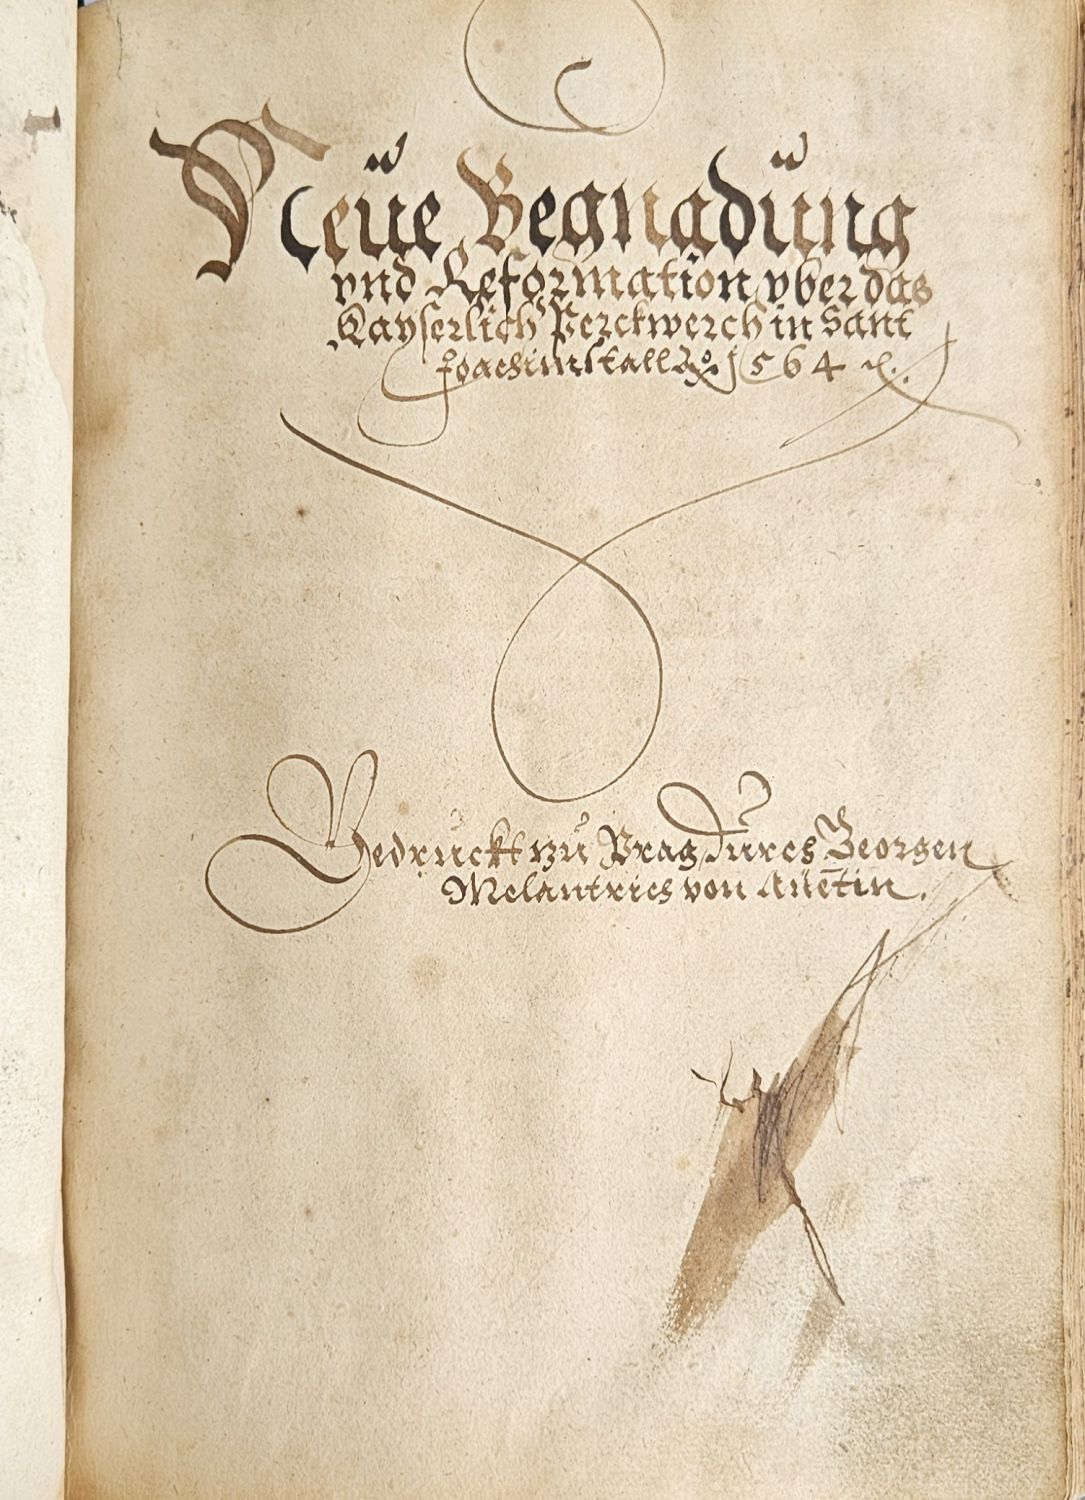 Neüe Begnadüng
vnd Reformation vber das
Kayserlich Perckwerch in Sant
Joachimstall Ao. 1564 
Gedruckt zu Prag durch Georgen
Melantrich von Auētin.